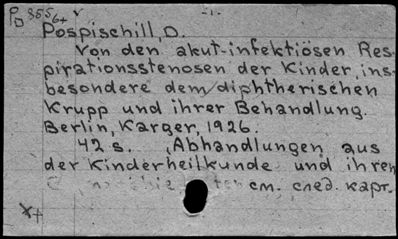 -1-
Pospischill, D.
Von den akut-infektiösen Res-
pirationsstenosen der Kinder, ins-
besondere dem diphtherischen
Krupp und ihrer Behandlung.
Berlin, Karger, 1926.
42 s. Abhandlungen aus
der Kinderheilkunde und ihren
см. след. карт.